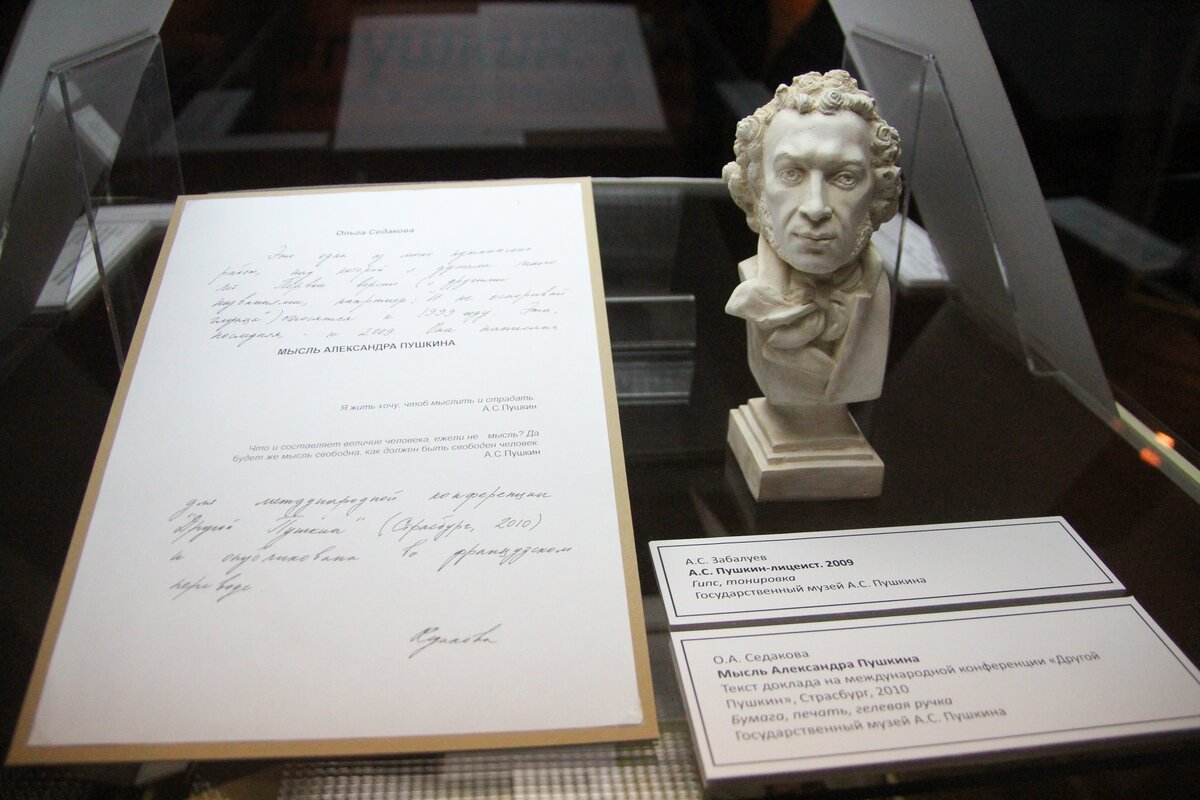 Пушкин
Ольга Седакова
Это одна из моих пушкинских
работ, над которой я думала много
лет. Первая версия (с другими
названиями, например: "И не оспоривай
глупца") относится к 1999 году. Эта,
последняя, - к 2009. Она написана
МЫСЛЬ АЛЕКСАНДРА ПУШКИНА
Я жить хочу, чтоб мыслить и страдать
А.С.Пушкин
Что и составляет величие человека, ежели не мысль? Да
будет же мысль свободна, как должен быть свободен человек
А.С.Пушкин
для международной конференции
"Другой Пушкин" (Страсбург, 2010)
и опубликована во французском
переводе
Седакова
А.С. Забалуев
А.С. Пушкин-лицеист. 2009
Гипс, тонировка
Государственный музей А.С. Пушкина
О.А. Седакова
Мысль Александра Пушкина
Текст доклада на международной конференции «Другой
Пушкин», Страсбург, 2010
Бумага, печать, гелевая ручка
Государственный музей А.С. Пушкина